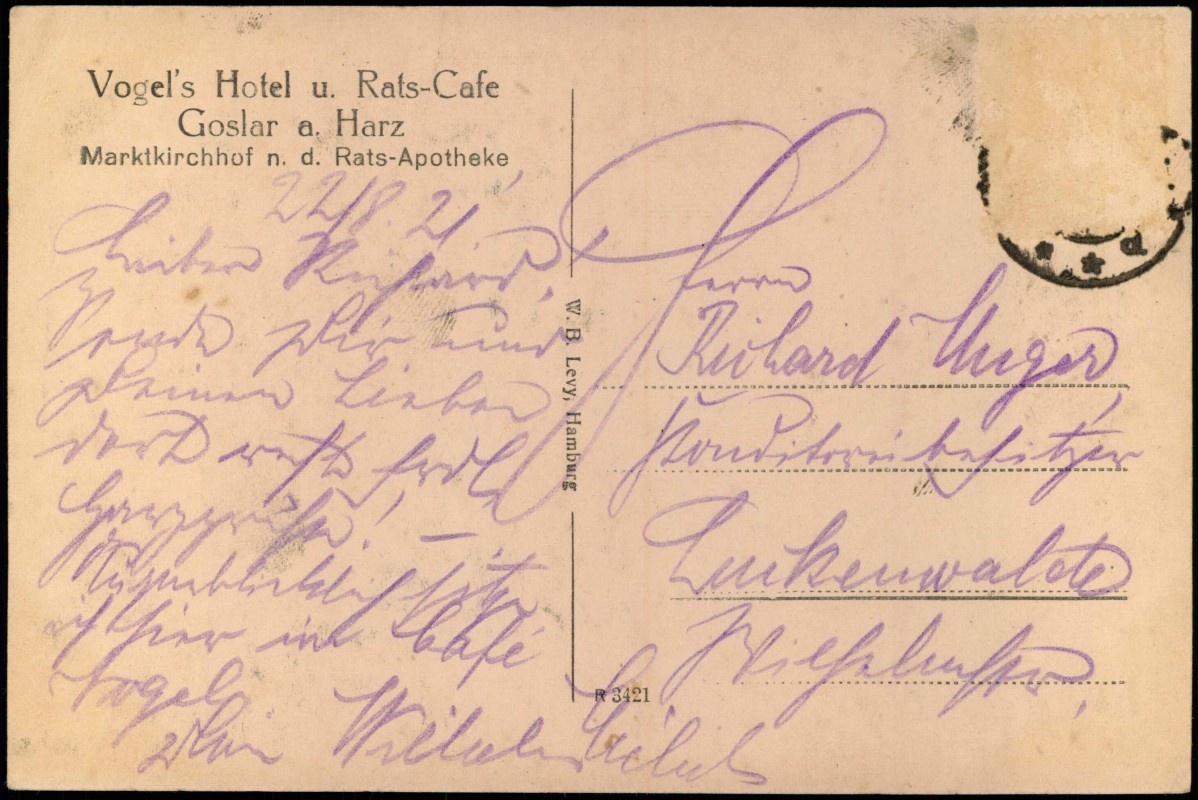 Vogel's Hotel u. Rats-Cafe
Goslar a. Harz
Marktkirchhof n. d. Rats-Apotheke
22/8. 21.
Lieber Richard,
Sende Dir und
Deinen Lieben
dort recht frdl.
Harzgrüße! –
Augenblicklich sitze
ich hier im Café
Vogel
Dein Wilhelm
W. B. Levy, Hamburg
R 3421
d
Herrn
Richard Unger,
Konditoreibesitzer
Luckenwalde
Wilhelmstr.